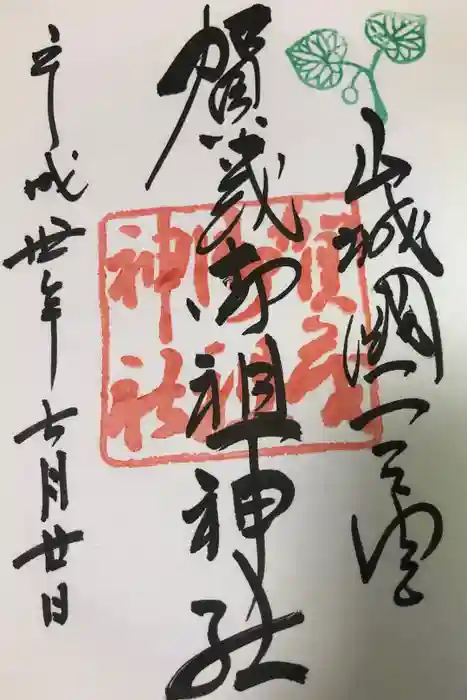 山城國一之宮
賀茂御祖神社
平成卅年七月廿日
賀茂
御祖
神社